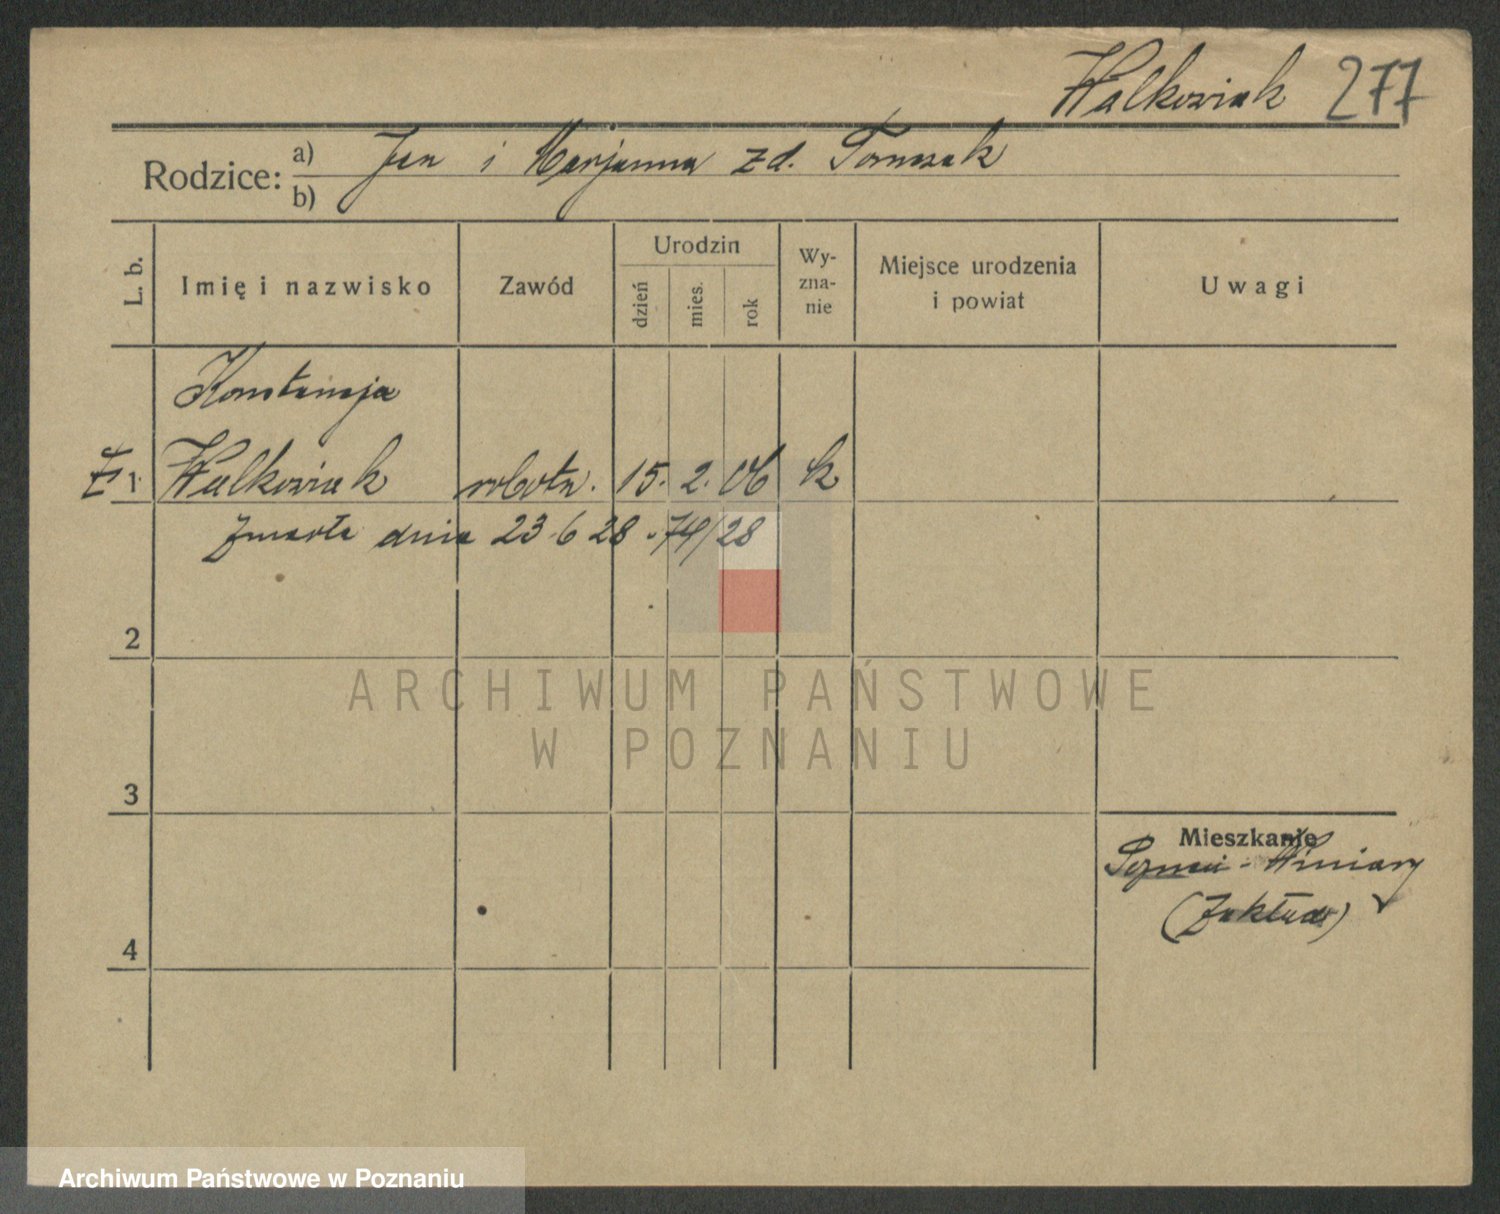 Walkowiak 277
Rodzice: a) Jan i Marjanna zd. Tomczak
b)
L. b.
Imię i nazwisko
Zawód
Urodzin
dzień
mies.
rok
Wy-
zna-
nie
Miejsce urodzenia
i powiat
Uwagi
Konstancja
1 Walkowiak robotn. 15. 2. 06 k
Zmarła dnia 23.6 28 . 74/28
2
ARCHIWUM PAŃSTWOWE
W POZNANIU
3
Mieszkanie
Winiary
(Zakład)
4
Archiwum Państwowe w Poznaniu